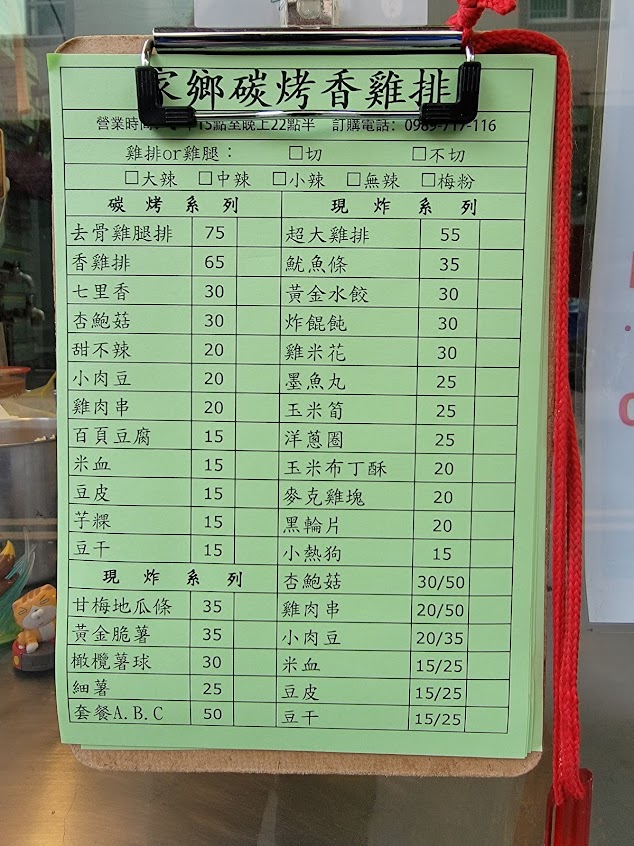 家鄉碳烤香雞排
營業時間 午15點至晚上22點半 訂購電話: 0989-717-116
雞排or雞腿： □切 □不切
□大辣 □中辣 □小辣 □無辣 □梅粉
碳烤系列
去骨雞腿排 75
香雞排 65
七里香 30
杏鮑菇 30
甜不辣 20
小肉豆 20
雞肉串 20
百頁豆腐 15
米血 15
豆皮 15
芋粿 15
豆干 15
現炸系列
甘梅地瓜條 35
黃金脆薯 35
橄欖薯球 30
細薯 25
套餐A.B.C 50
現炸系列
超大雞排 55
魷魚條 35
黃金水餃 30
炸餛飩 30
雞米花 30
墨魚丸 25
玉米筍 25
洋蔥圈 25
玉米布丁酥 20
麥克雞塊 20
黑輪片 20
小熱狗 15
杏鮑菇 30/50
雞肉串 20/50
小肉豆 20/35
米血 15/25
豆皮 15/25
豆干 15/25